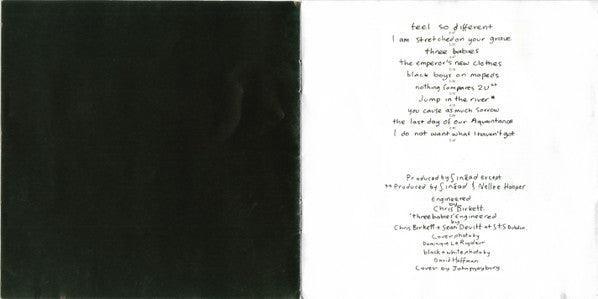 feel so different
I am stretched on your grave
three babies
the emperor's new clothes
black boys on mopeds
nothing compares 2U**
Jump in the river*
you cause as much sorrow
the last day of our Aquantance
I do not want what I haven't got
Produced by Sinéad except
** Produced by Sinéad & Nellee Hooper
Engineered
by
Chris Birkett.
'three babies' engineered
by
Chris Birkett + Sean Devitt at STS Dublin.
Cover photo by
Dominique Le Rigoleur
black + white photo by
David Hoffman
Cover by John maybury